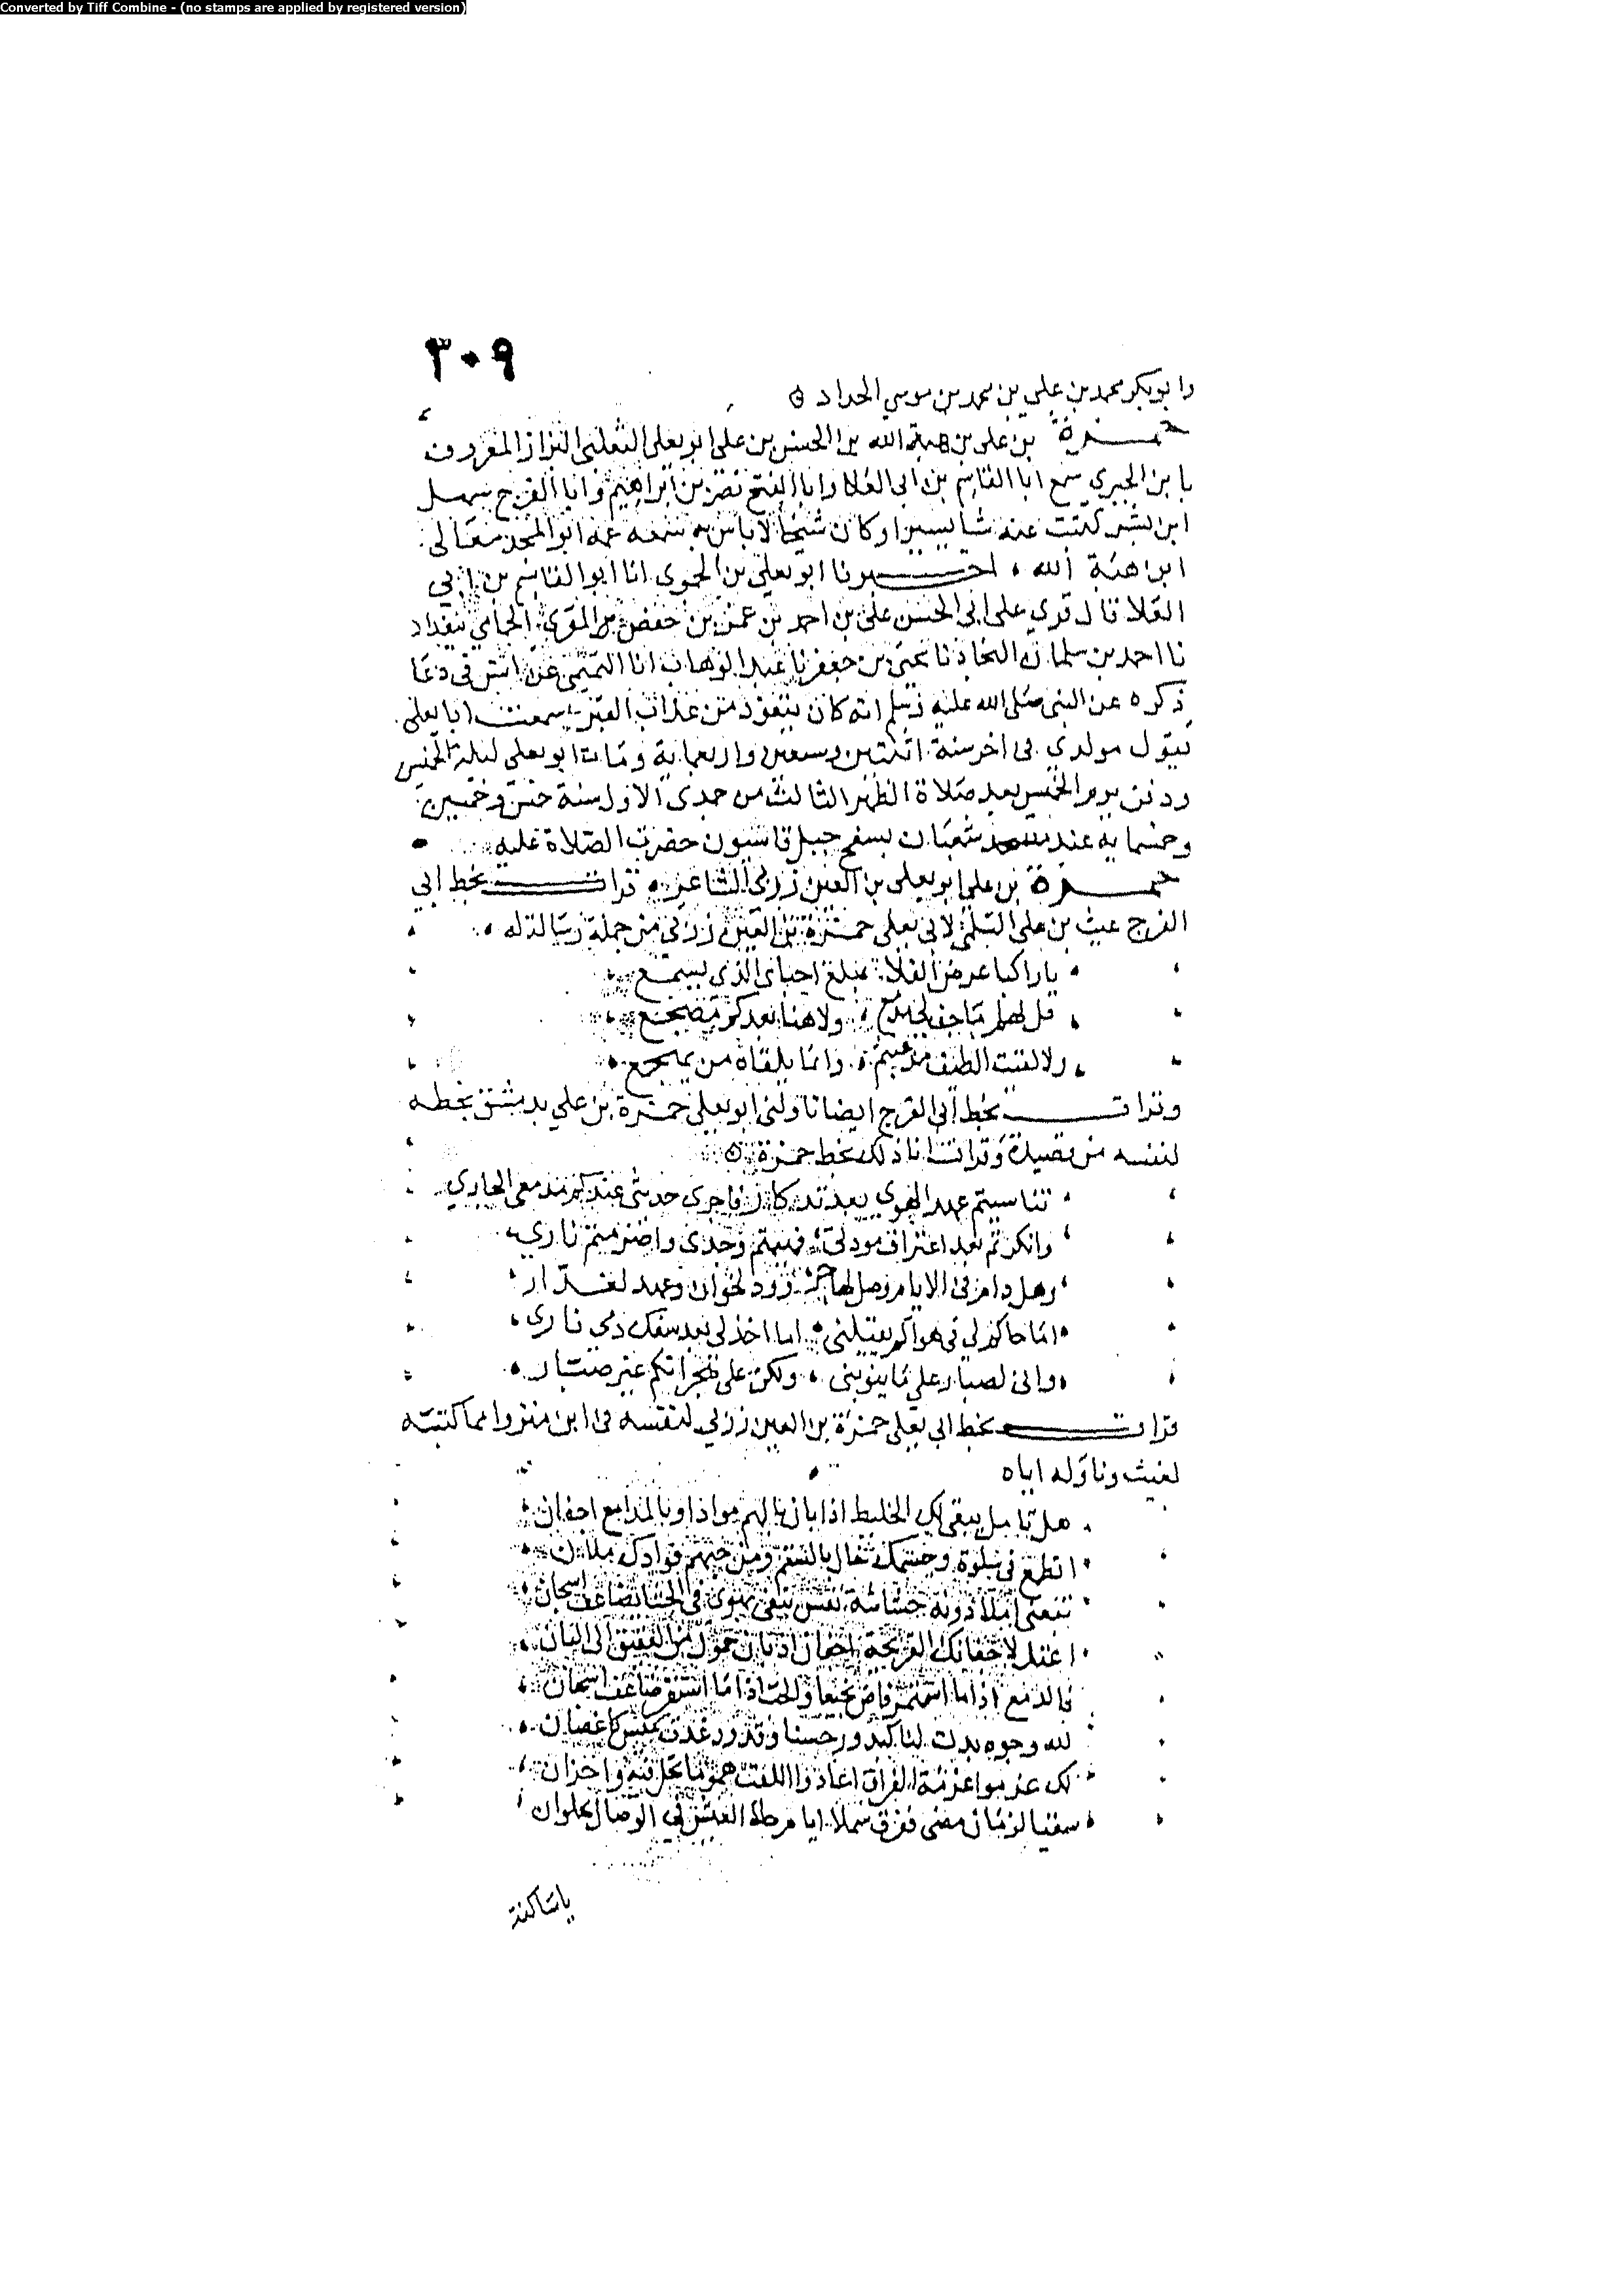 Converted by Tiff Combine - (no stamps are applied by registered version)
٣٠٩
وابوبكر محمد بن علي بن محمد بن موسي الحداد
حمزة بن على بن هبة الله بن الحسن بن على ابو يعلى الثعلبى البزاز المعروف
با بن سمع ابا القاسم بن ابى العلا وابا الفتح نصر بن ابراهيم وابا الفرج سهل
ابن بشر كتبت عنه شيا يسيرا وكان شيخا لا باس به سمعه عمه ابو المجد معالى
ابن هبة الله اخبرنا ابو يعلى بن انا ابو القاسم بن ابي
العلا قال قري على ابى الحسن على بن احمد بن عمر بن حفص بن المقرى الحمامي ببغداد
نا احمد بن سلمان النجاد نا يحيى بن جعفر نا عبد الوهاب انا التيمى عن انس فى دعا
ذكره عن النبى صلى الله عليه وسلم انه كان يتعوذ من عذاب القبر سمعت ابا يعلى
يقول مولدي فى اخر سنة اثنتين وسبعين واربعماية ومات ابو يعلى ليلة الخميس
ودفن يوم الخميس بعد صلاة الظهر الثالث من جمدى الاول سنة خمس وخمسين
وخمسماية عند مسجد شعبان بسفح جبل قاسيون حضرت الصلاة عليه
حمزة بن على ابو يعلى بن العين زربى الشاعر قرات بخط ابي
الفرج غيث بن على لابى يعلى حمزة بن العين زربى من جملة رسالة له
يا راكبا عرض الفلا مبلغ احباى الذى يسمع
قل لهم ما جف لى مدمع ولا هنا بعدكم مضجع
ولا لقيت الطيف مذ غبتم وانما يلقاه من يهجع
وقرات بخط ابى الفرج ايضا ناولنى ابو يعلى حمزة بن علي بدمشق بخطه
لنفسه من قصيدة وقرات انا ذلك بخط حمزة
تناسيتم عهد الهوي بعد تذكار فاجرى حديثى عندكم مدمعى الجاري
وانكرتم بعد اعتراف مودتى فهيجتم وجدى واضرمتم ناري
وهل دام فى الايام وصل لهاجر وود لخوان وعهد لغدار
اما حاكم لي فى هواكم يقيلنى اما اخذ لى بعد سفك دمي ثارى
وانى لصبار علي ما ينوبنى ولكن على هجرانكم غير صبار
قرات بخط ابي يعلى حمزة بن العين زربي لنفسه فى ابن منزوا مما كتبته
لغيث وناوله اياه
هل تامل يبقى لك الخليط اذا بان بالهم فواذا وبالمدامع اجفان
اتطمع فى سلوة وجسمك حال بالسقم ومن حبهم فوادك ملان
تبغى املا دونه حشاشة نفس تبقى بهوى فى الحشا تضاعف اشجان
اعتد لاجفانك القريحة اجفان اذ بان حمول من العقيق الى البان
فالدمع اذا ما استمر فاض نجيعا والحب اذا ما استقر ضاعف اشجان
لله وجوه بدت لنا كبدور حسنا وقدود غدت تميس كاغصان
لك عزموا عزمة الفراق اعادوا للقلب هموما تحل فيه واحزان
سقيا لزمان مضى ففرق شملا ايام حلا العيش في الوصال بحلوان
يا ساكنة